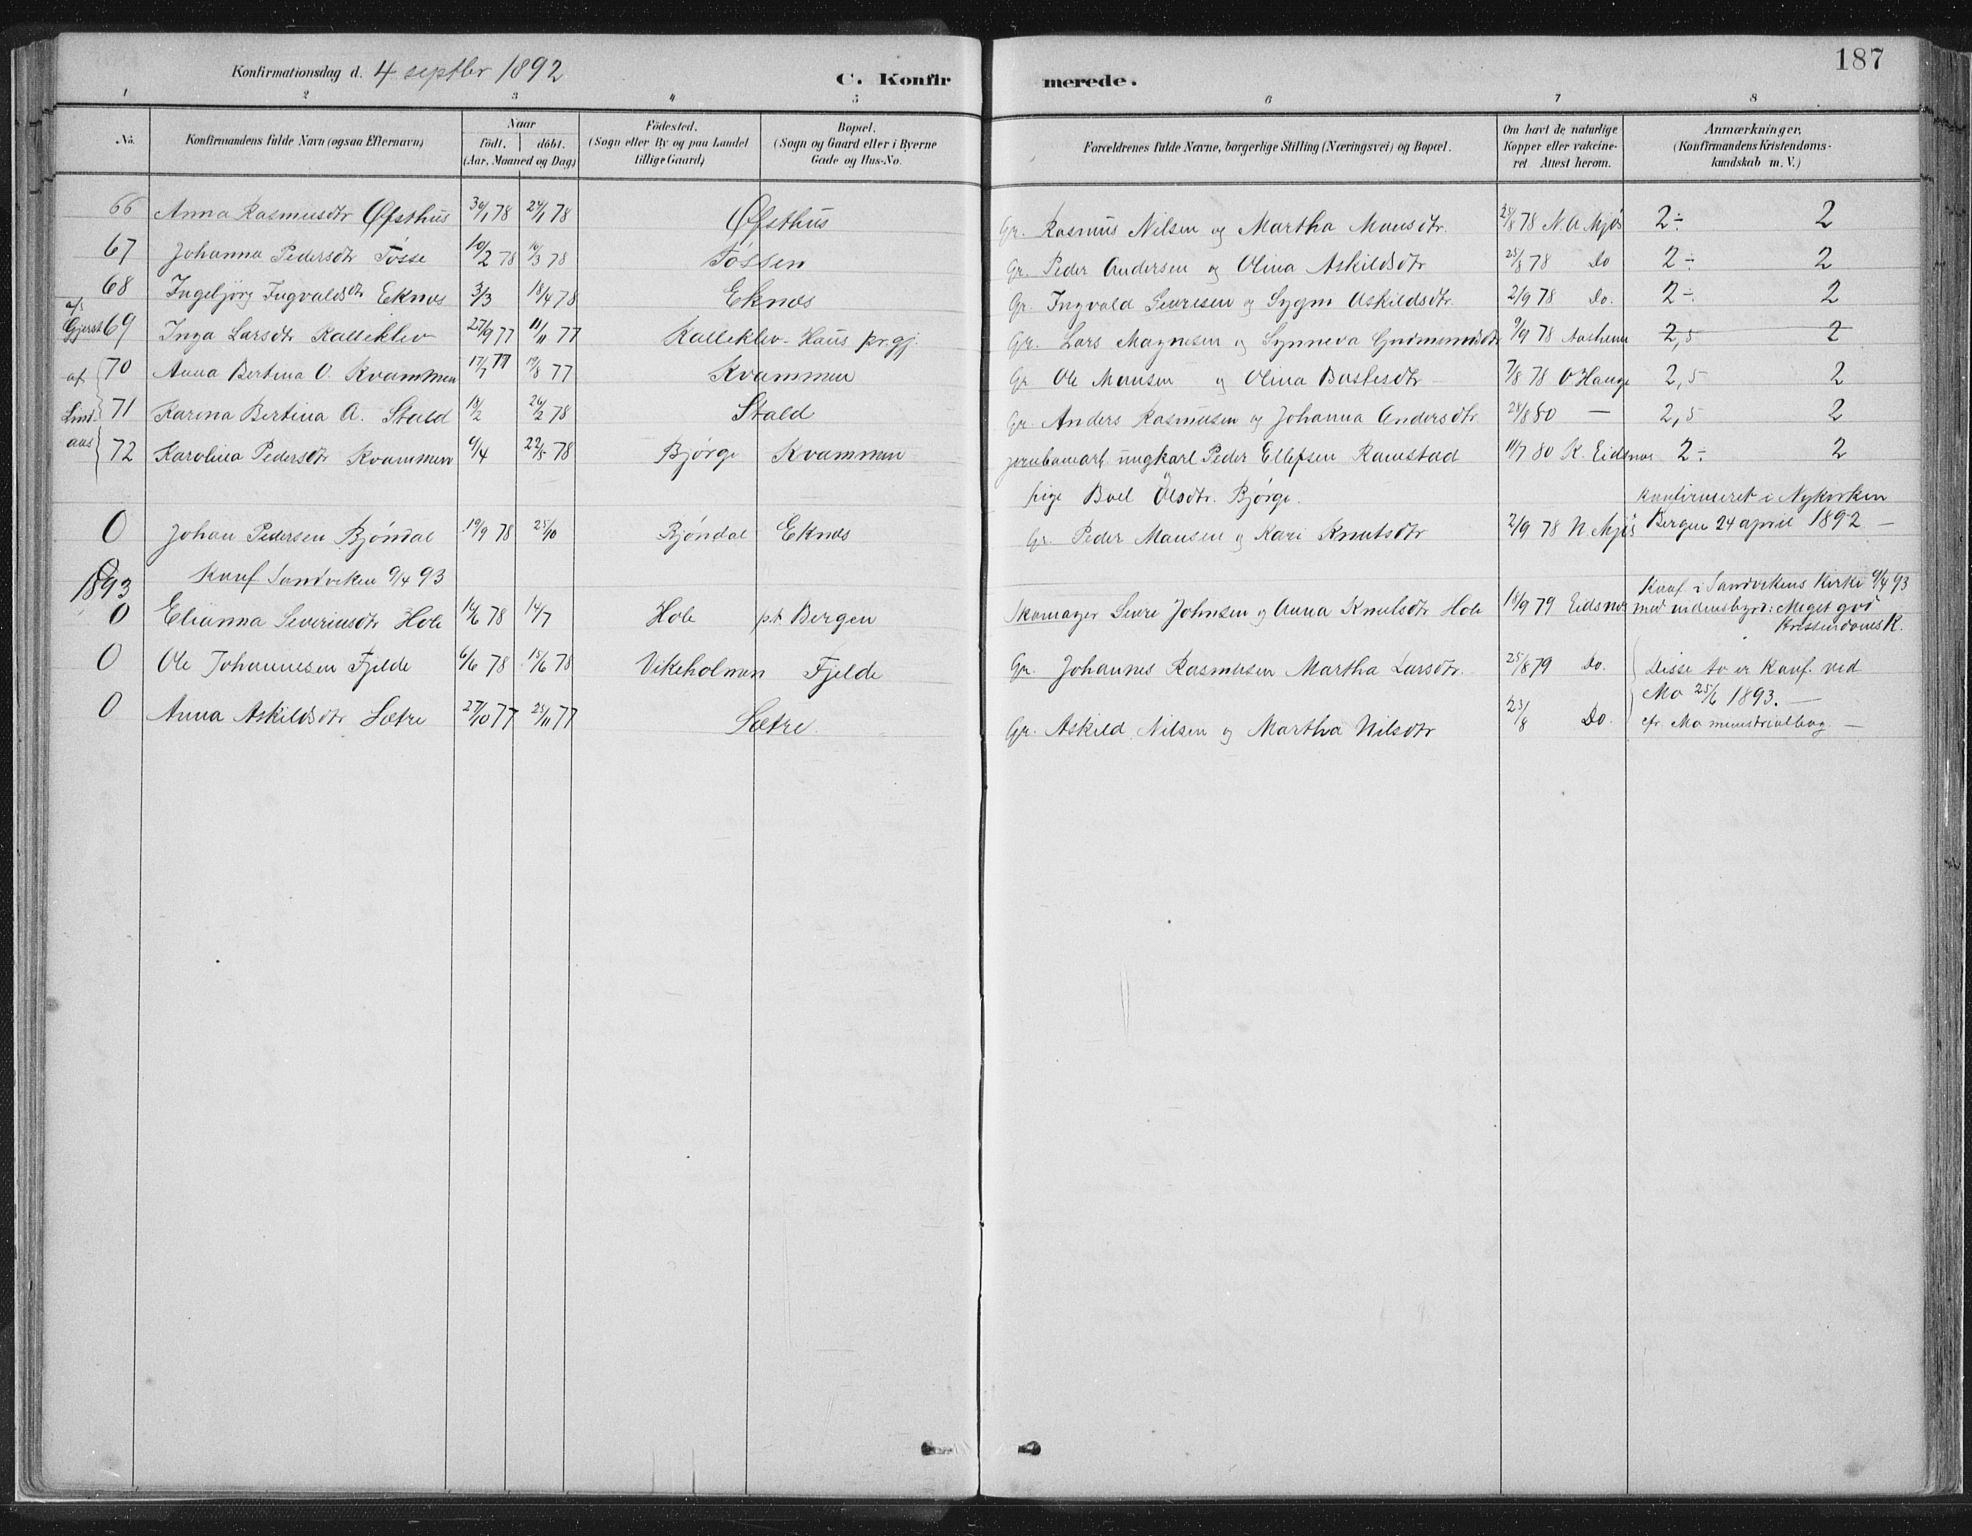 187
Konfirmationsdag d. 4 septbr 1892 C. Konfir merede.
1 2 3 4 5 6 7 8
No. Konfirmandens fulde Navn (ogsaa Efternavn) Naar født. døbt. (Aar, Maaned og Dag) Fødested. (Sogn eller By og paa Landet tillige Gaard) Bopæl. (Sogn og Gaard eller i Byerne Gade og Hus-No. Forældrenes fulde Navne, borgerlige Stilling (Næringsvei) og Bopæl. Om havt de naturlige Kopper eller vakcineret Attest herom. Anmærkninger, (Konfirmandens Kristendomskundskab m. V.)
66 Anna Rasmusdtr Øfsthus 30/1 78 24/1 78 Øfsthus Gr. Rasmus Nilsen og Martha Mansdtr. 28/8 78 N. A Mjøs 2÷ 2
67 Johanna Pedersdtr Tøsse 10/2 78 78 Tøssen Gr. Peder Andersen og Olina Askildsdtr 25/8 78 Do 2÷ 2
68 Ingebjørg Ingvaldsdtr Eknes 3/3 18/4 78 Eknes Gr. Ingvald Severisen og Sygni Askildsdtr. 2/9 78 Do. 2÷ 2
af Gjerst 69 Inga Larsdtr Kalleklev 27/9 77 11/11 77 Kalleklev - Haus pr.gj. Gr. Lars Magnesen og Synneva Gudmundsdtr 9/9 78 2,5 2
af 70 Anna Bertina O. Kvammen 17/7 77 19/8 77 Kvammen Gr Ole Mansen og Olina 7/8 78 O Hauge 2,5 2
Lind- 71 Karina Bertina A. Stald 26/2 78 Stald Gr. Anders Rasmusen og Johanna Andersdtr 24/8 80 — 2,5 2
aas 72 Karolina Pedersdtr Kvammen 6/4 22/5 78 Bjørge Kvammen jernbanearb. ungkarl Peder Ellefsen Ramstad 11/7 80 K. Eidsnes 2÷ 2
pige Boel Olsdtr. Bjørge. Konfirmeret i Nykirken
0 Johan Pedersen Bjøndal 19/9 78 25/10 Bjøndal Eknes Gr. Peder Mansen og Kari Knutsdtr 2/9 78 N. Mjøs Bergen 24 april 1892 —
Konf Sandviken 9/4 93
1893
Konf i Sandvikens Kirke 9/4 93
0 Elianna Severinsdtr Hole 14/6 78 14/7 Hole p.t. Bergen Skomager Sevre Johnsen og Anna Knutsdtr Hole 18/9 79 Eidsnes med vidensbyrd: Meget god
Kristendoms K.
0 Ole Johannesen Fjelde 6/6 78 15/6 78 Vikeholmen Fjelde Gr. Johannes Rasmusen Martha Larsdtr. 25/8 79 Do. Disse to er Konf. ved
Mo 25/6 1893. —
0 Anna Askildsdtr Sætre 27/10 77 25/11 77 Sætre. Gr. Askild Nilsen og Martha Nilsdtr 23/8 Do. cfr. Mo ministrialbog. —